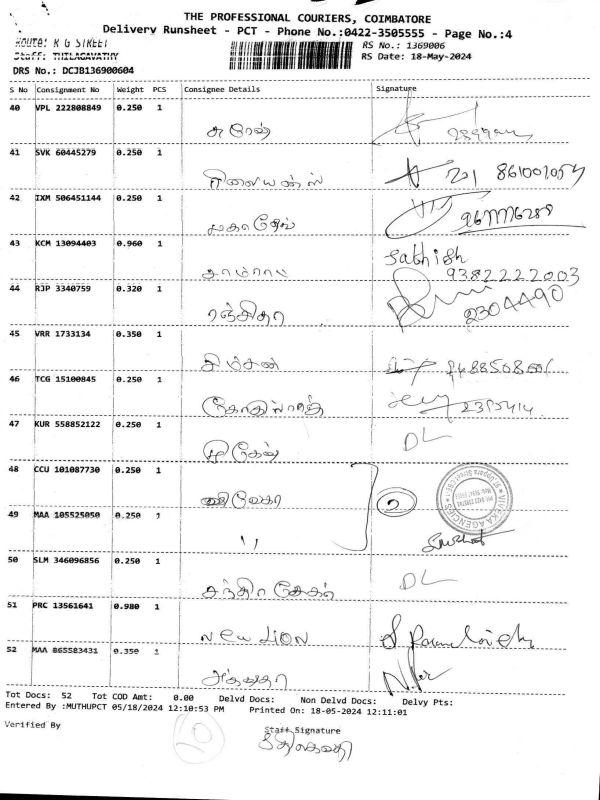 THE PROFESSIONAL COURIERS, COIMBATORE
Delivery Runsheet - PCT - Phone No.:0422-3505555 - Page No.:4
Route: R G STREET
RS No.: 1369006
Staff: THILAGAVATHY
RS Date: 18-May-2024
DRS No.: DCJB136900604
S No Consignment No Weight PCS Consignee Details Signature
40 VPL 222808849 0.250 1
சுரேஷ்
41 SVK 60445279 0.250 1
ரிலையன்ஸ்
42 IXM 506451144 0.250 1
மகாதேவ்
43 KCM 13094403 0.960 1 Sathish
சாம்ராஜ் 9382222003
44 RJP 3340759 0.320 1
ரஞ்சிதா 2304490
45 VRR 1733134 0.350 1
சிம்சன்
46 TCG 15100845 0.250 1
47 KUR 558852122 0.250 1
முகேஷ் DL
48 CCU 101087730 0.250 1
விவேகா 2
VIVEKA AGENCIES
49 MAA 105525050 0.250 1
"
50 SLM 346096856 0.250 1
சந்திரசேகர் DL
51 PRC 13561641 0.980 1
New LION
52 MAA 865583431 0.350 1
அச்சுதா
Tot Docs: 52 Tot COD Amt: 0.00 Delvd Docs: Non Delvd Docs: Delvy Pts:
Entered By :MUTHUPCT 05/18/2024 12:10:53 PM Printed On: 18-05-2024 12:11:01
Verified By 10 Staff Signature